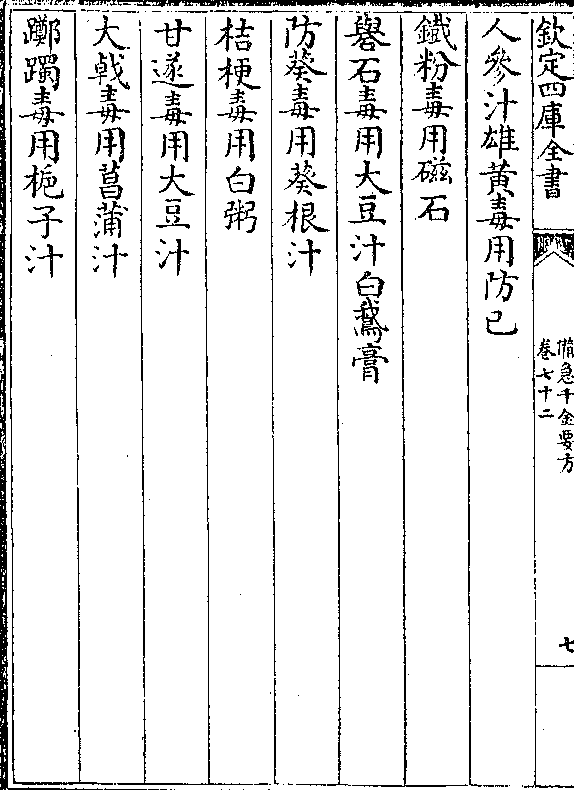 欽定四庫全書
備急千金要方
卷七十二
七
人參汁雄黃毒用防己
鐵粉毒用磁石
礜石毒用大豆汁白鵞膏
防葵毒用葵根汁
桔梗毒用白粥
甘遂毒用大豆汁
大戟毒用菖蒲汁
躑躅毒用梔子汁